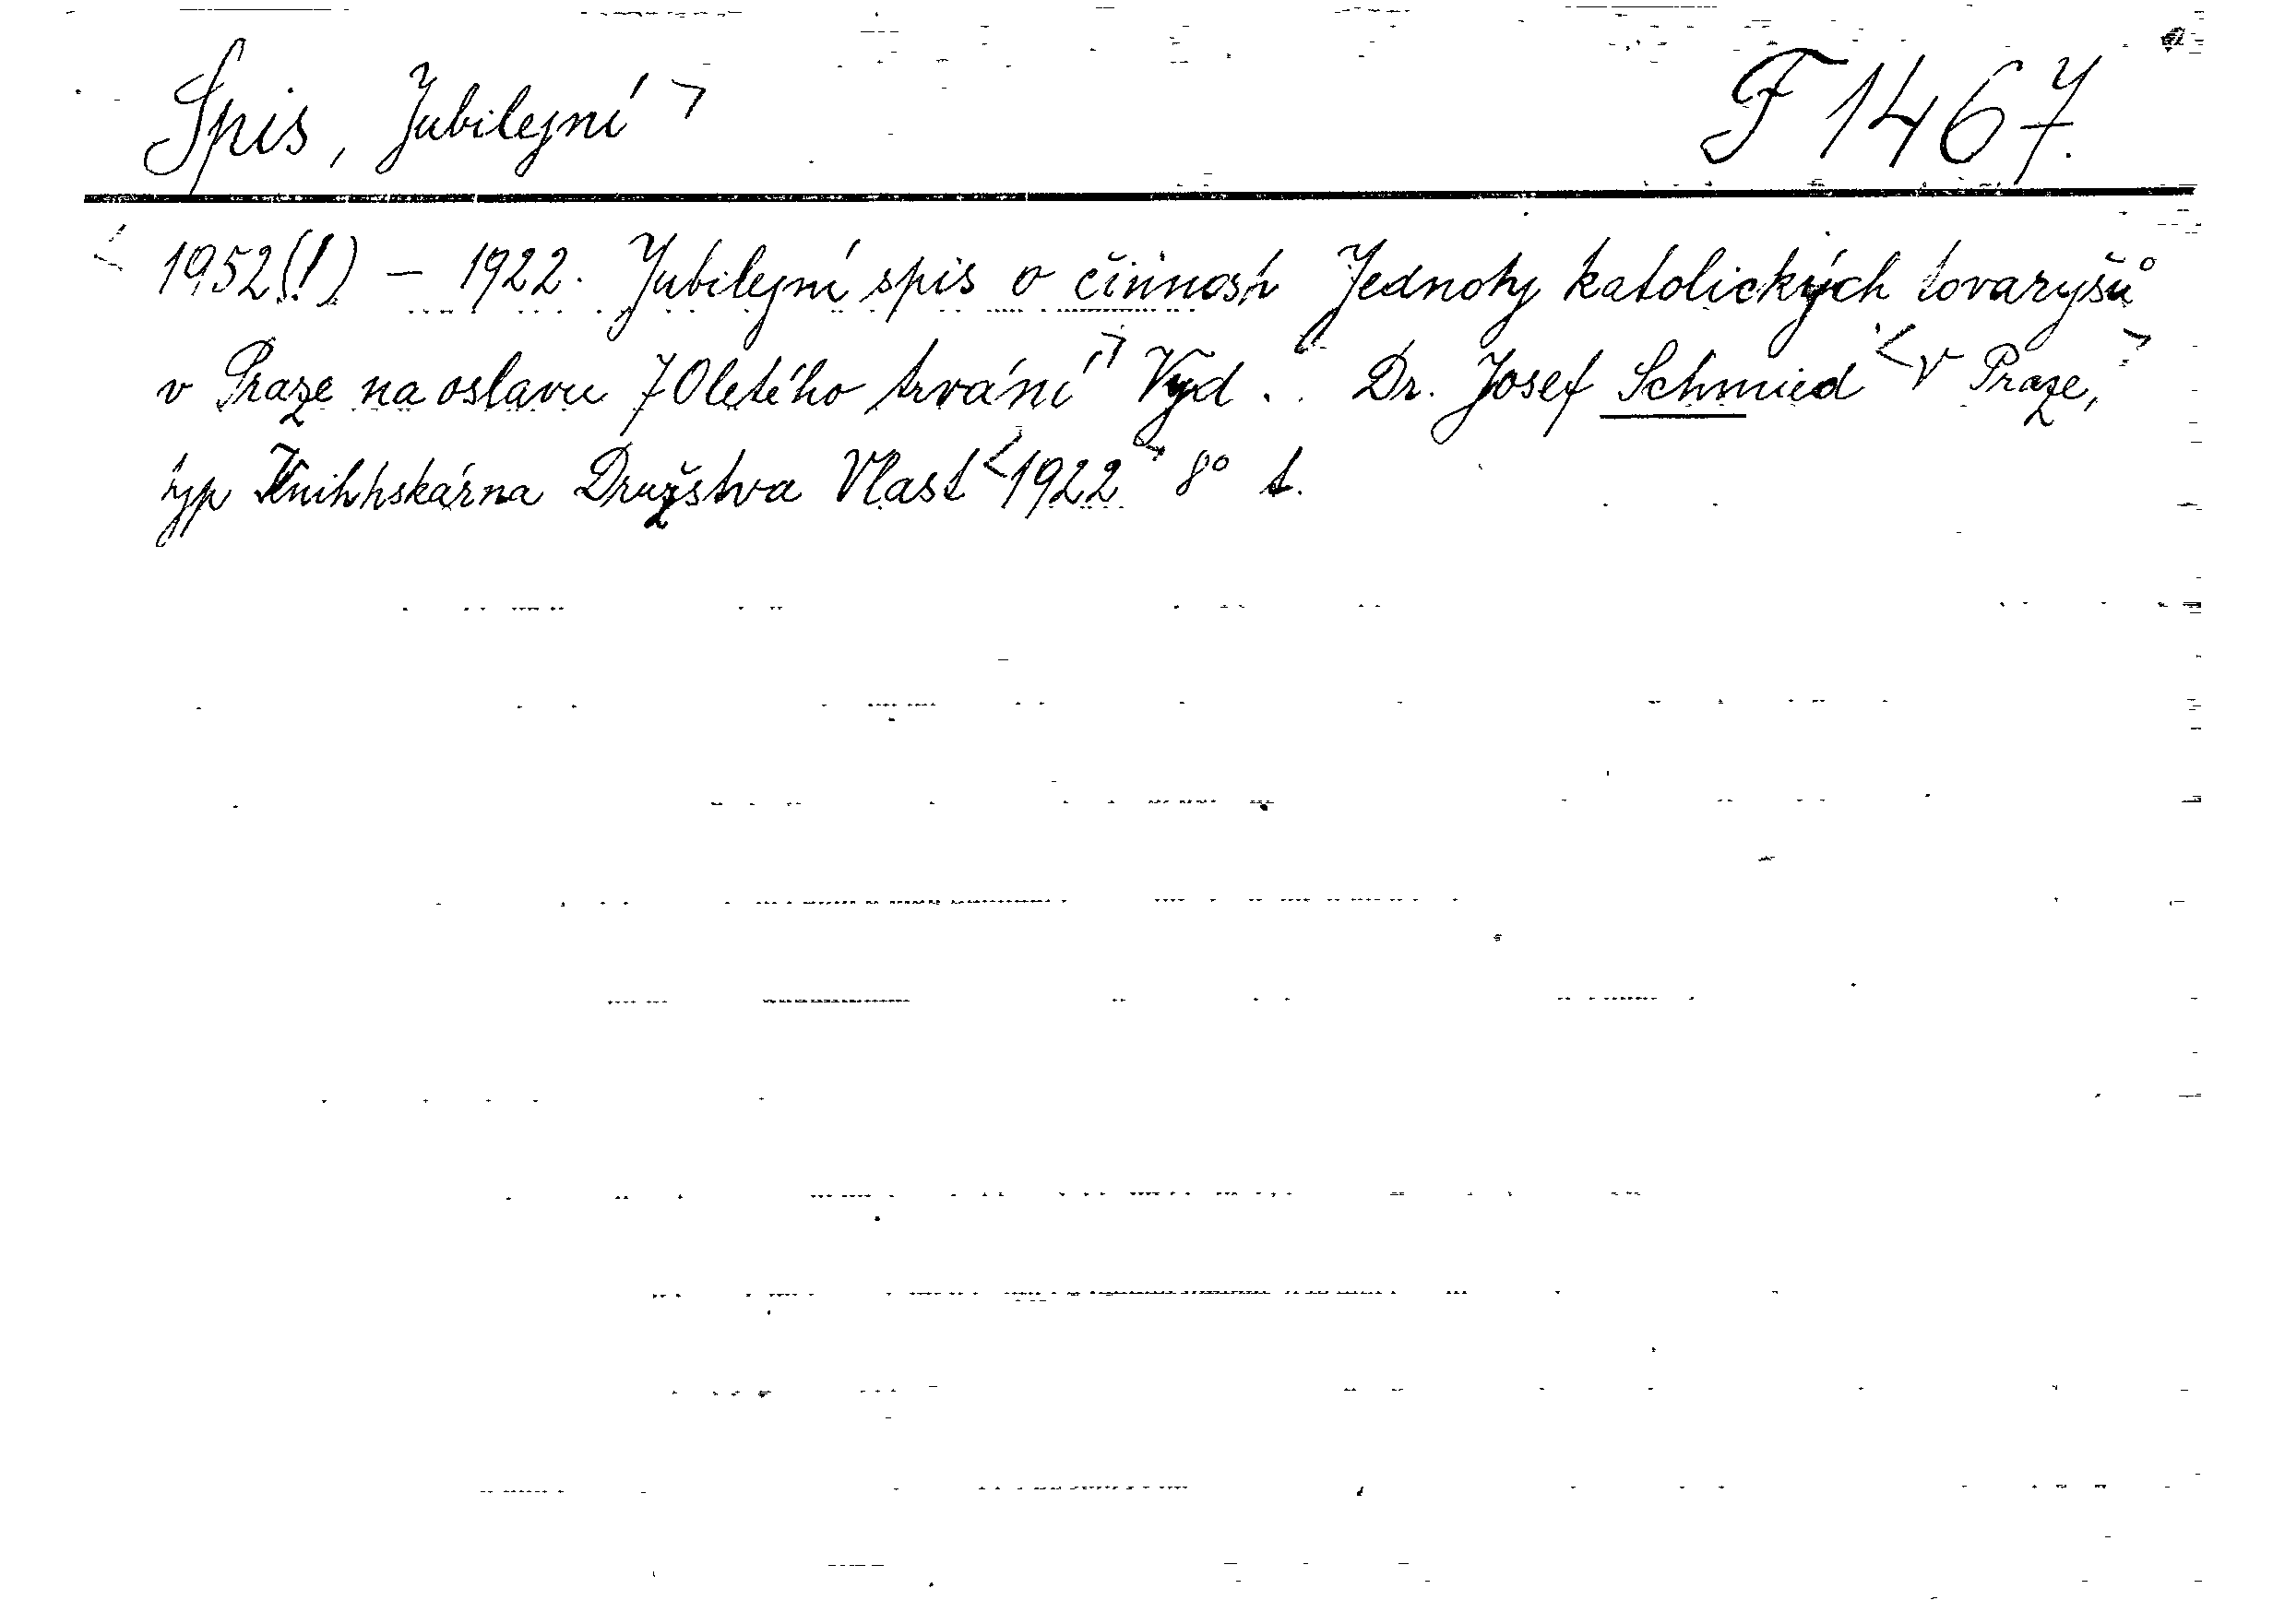 Spis, Jubilejní > F 1467.
< 1952(!) – 1922. Jubilejní spis o činnosti Jednoty katolických tovaryšů
v Praze na oslavu 70letého trvání > Vyd. . Dr. Josef Schmied < V Praze, >
typ Knihtiskárna Družstva Vlast < 1922 > 8° t.